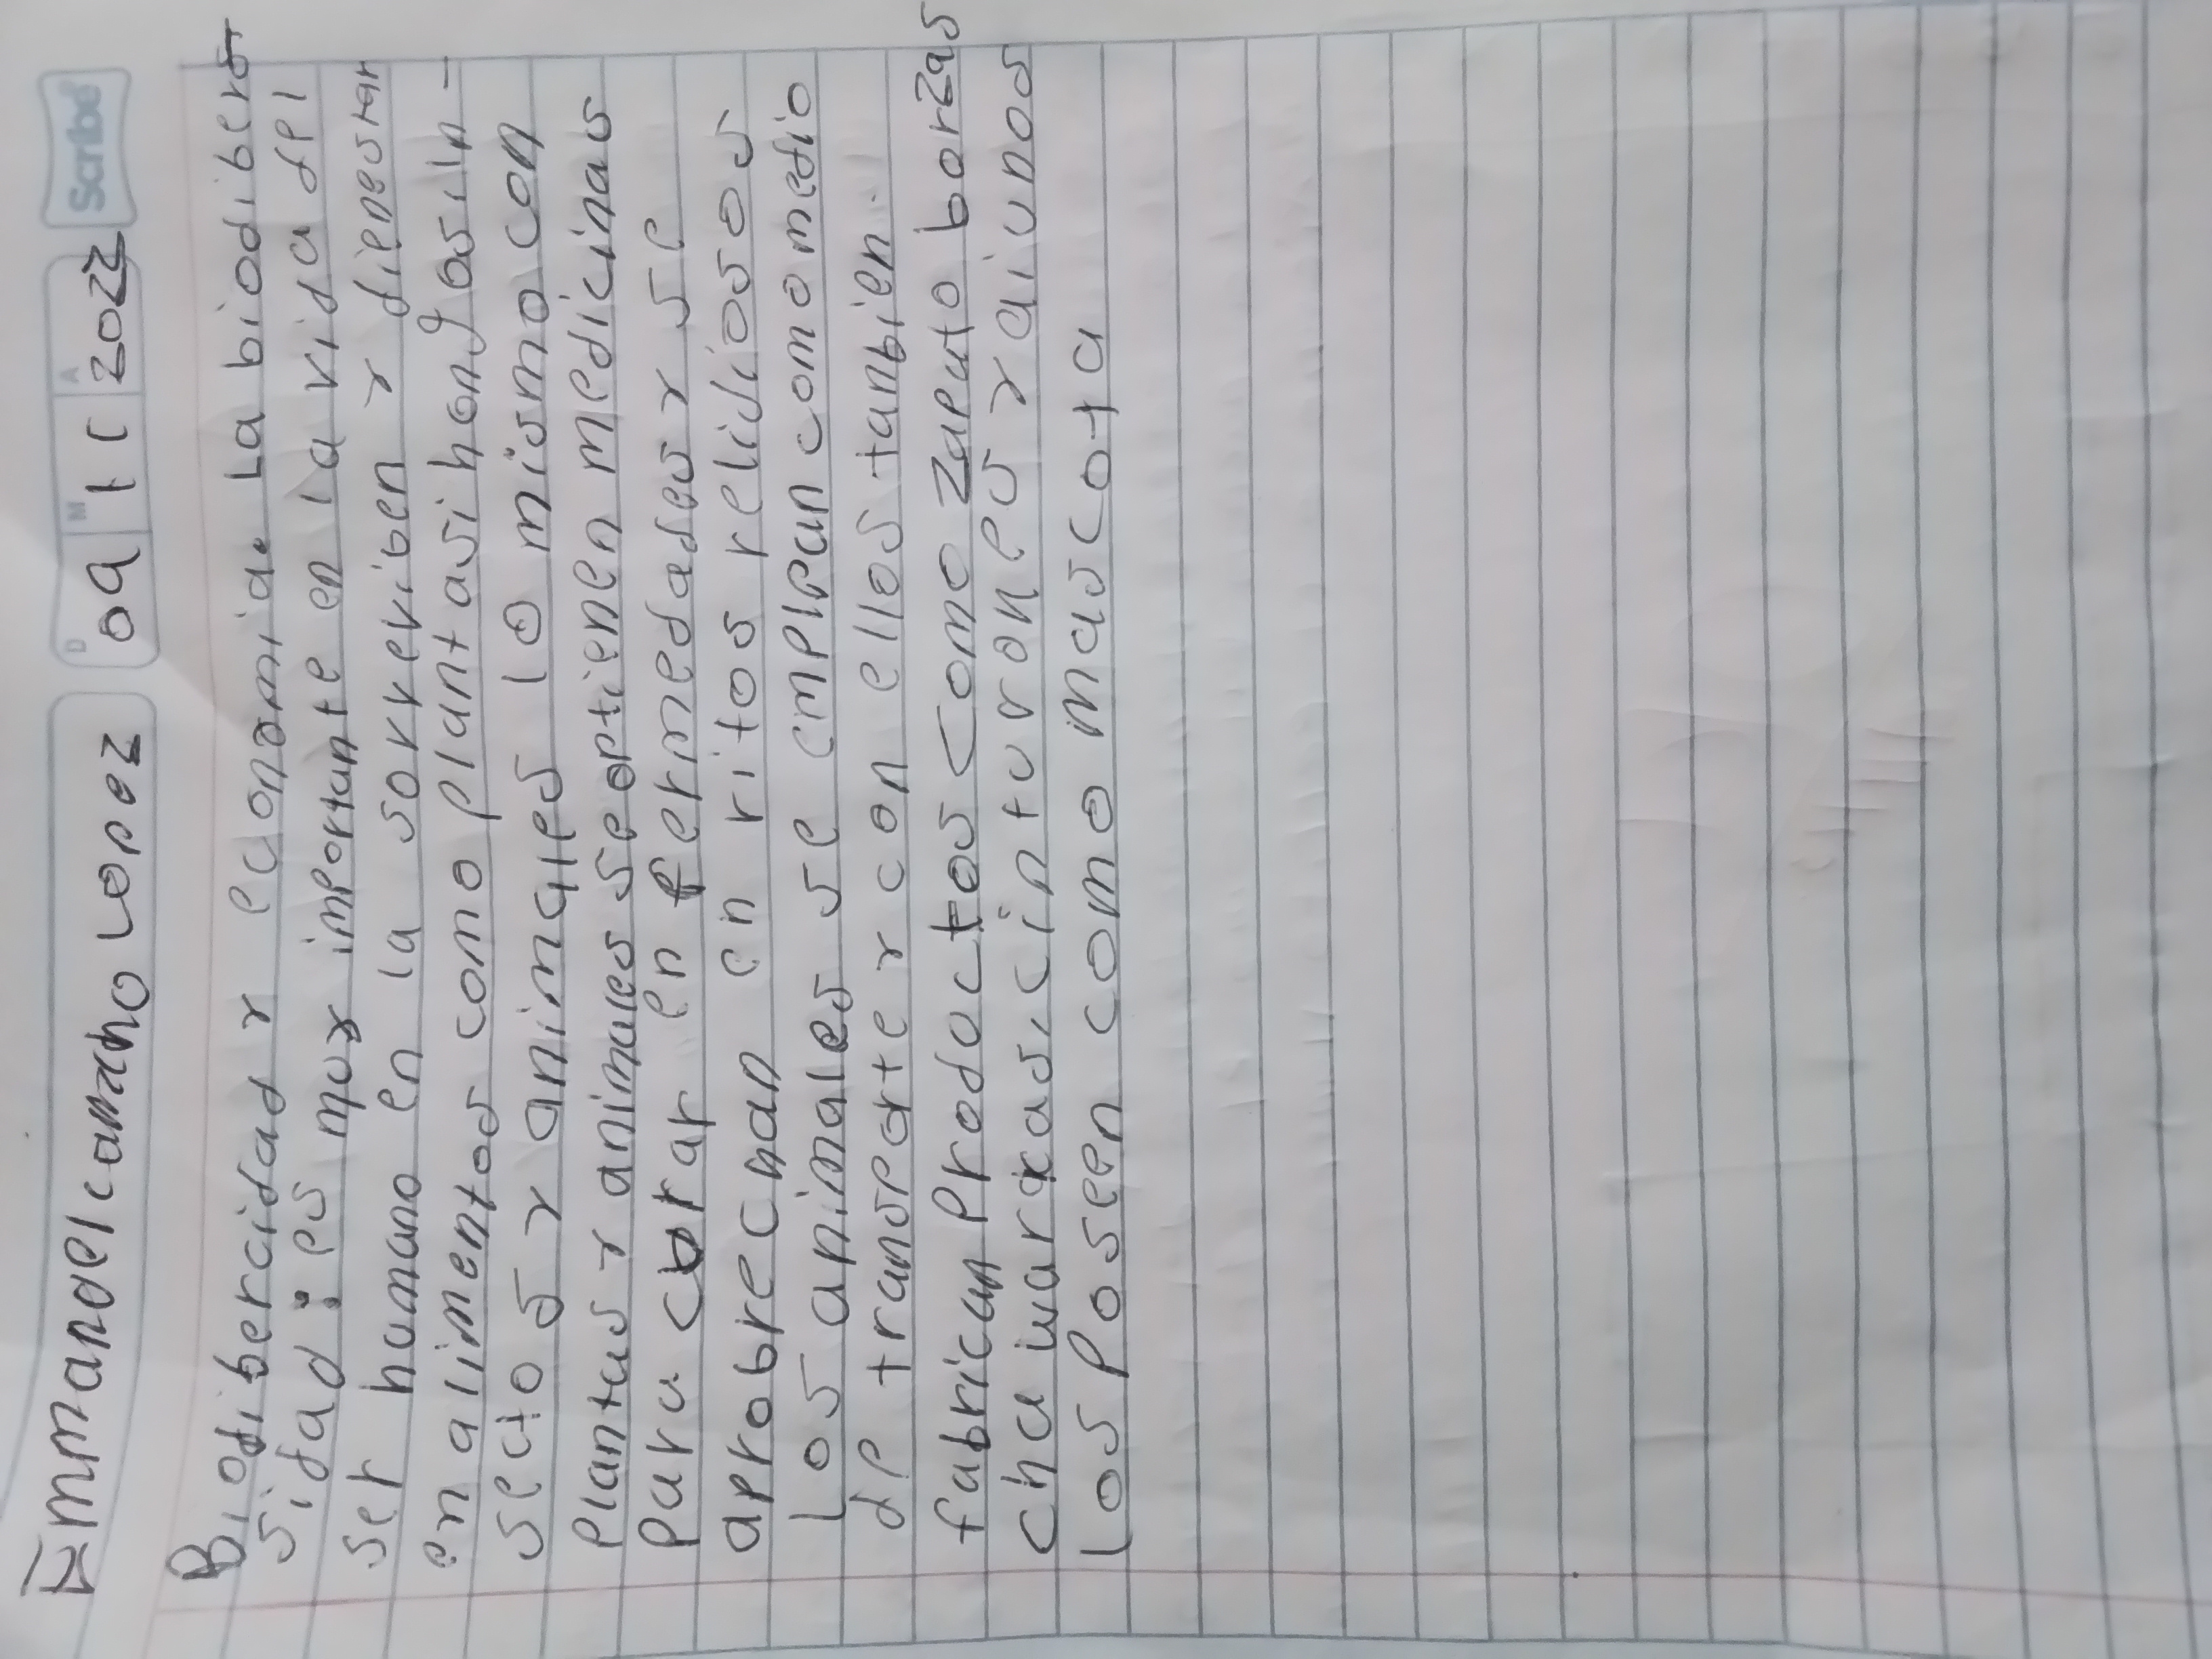 Emmanoel camacho Lopez
D M A
09 11 2022
Scribe
Biodibercidad y economia. La biodiber
sidad: es muy importante en la vida del
ser humano en la sorreviben y
en alimentos como plantasihongosiin-
sectos y animales lo mismo con
Plantas y animales se optienen medicinas
Para curar enfermedades y se
aprobrechan en ritos relidiosos
los animales se emplean como medio
de transporte y con ellos tanbien.
fabrican Prodoctos como zapato borzas
chawarkas, cinturones y aiunos
los Poseen como mascota